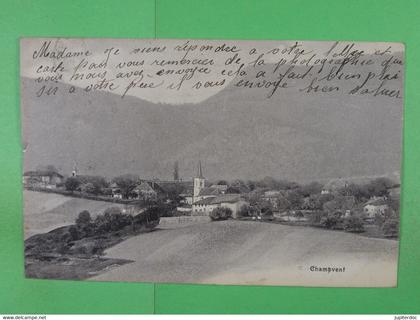 Madame je viens répondre a votre lettre et
carte pour vous remercier de la photographie que
vous m'avez envoyée cela a fait bien plaisir
a votre père il vous envoie bien saluer
Champvent
www.jupiterdoc.ch